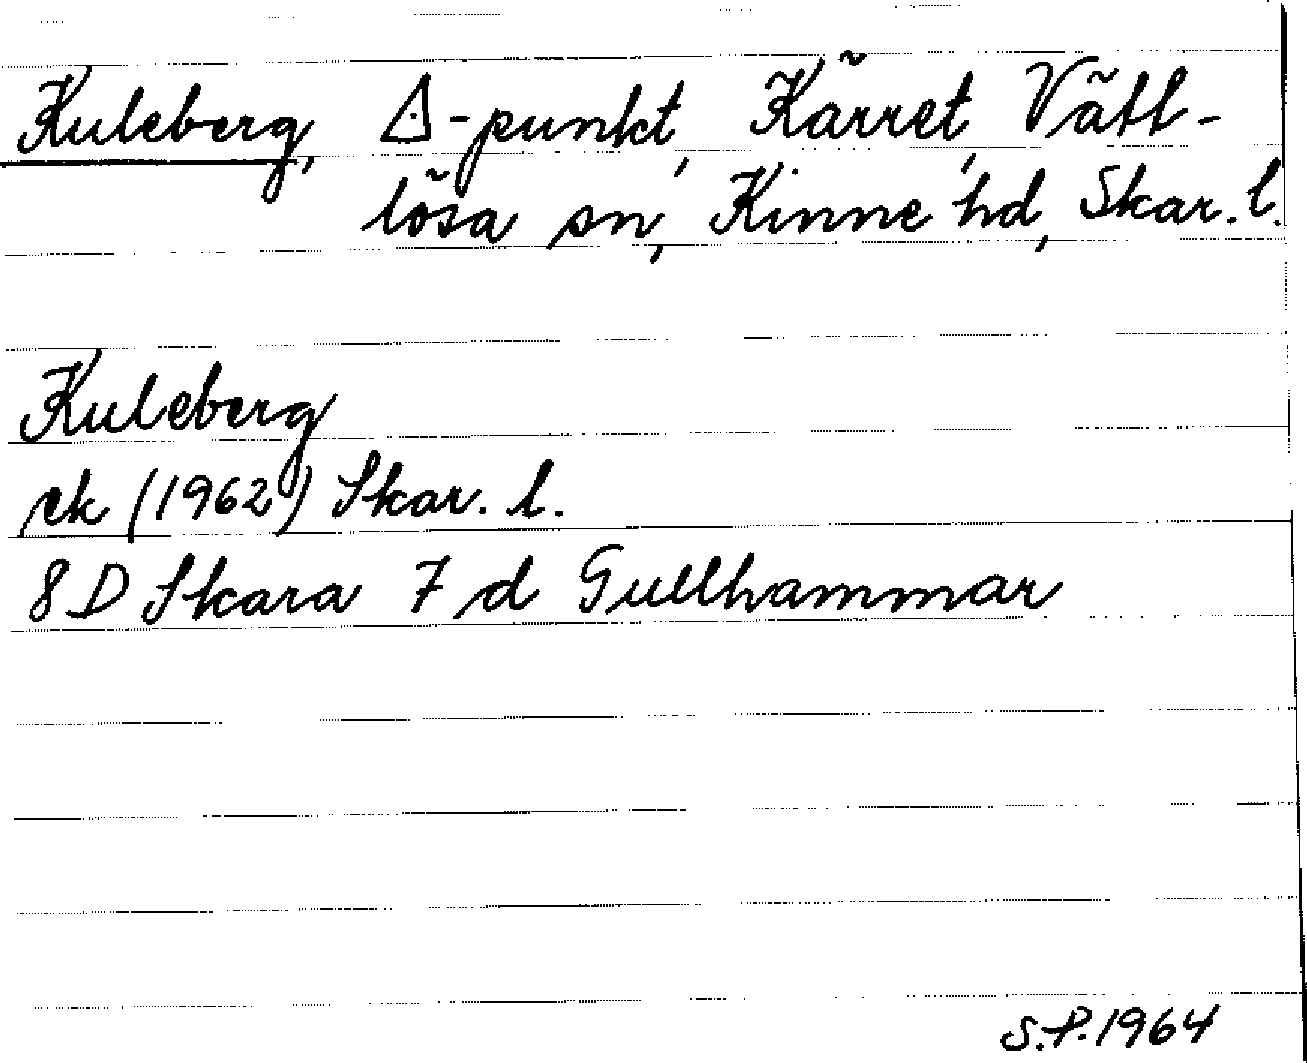 Kuleberg, △-punkt, Kärret, Vätt-
lösa sn, Kinne hd, Skar. l.
Kuleberg
ek (1962) Skar. l.
8 D Skara 7 d Gullhammar
S.P. 1964